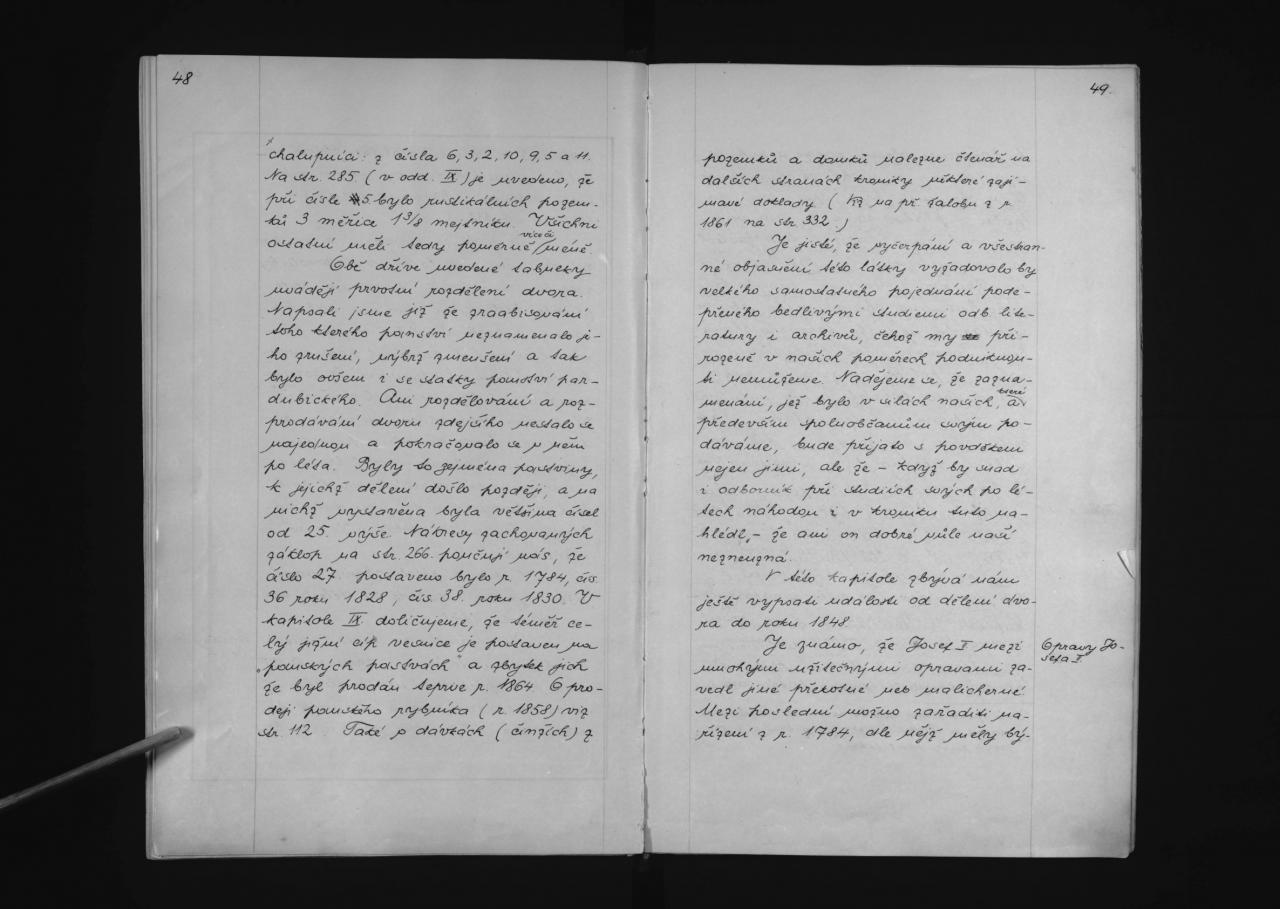 48
chalupníci: z čísla 6, 3, 2, 10, 9, 5 a 11.
Na str. 285 (v odd. IX) je uvedeno, že
při čísle 5 bylo rustikálních pozem-
ků 3 měřice 1 3/8 mejstníku. Všichni
ostatní měli tedy poměrně více či méně.
Obě dříve uvedené tabulky
uvádějí prvotní rozdělení dvora.
Napsali jsme již že zraabisování
toho kterého panství neznamenalo je-
ho zrušení, nýbrž zmenšení a tak
bylo ovšem i se statky panství par-
dubického. Ani rozdělování a roz-
prodávání dvoru zdejšího nestalo se
najednou a pokračovalo se v něm
po léta. Byly to zejména pastviny,
k jejichž dělení došlo později, a na
nichž vystavěna byla většina čísel
od 25. výše. Nákresy zachovaných
záklop na str. 266. poučují nás, že
číslo 27. postaveno bylo r. 1784, čís.
36 roku 1828, čís. 38. roku 1830. V
kapitole IX. doličujeme, že téměř ce-
lý jižní cíp vesnice je postaven na
„panských pastvách" a zbytek jich
že byl prodán teprve r. 1864. O pro-
deji panského rybníka (r. 1858) viz
str. 112. Také o dávkách (činžích) z
49.
pozemků a domků nalezne čtenář na
dalších stranách kroniky některé zají-
mavé doklady (Viz na př. žalobu z r.
1861 na str. 332.)
Je jisté, že vyčerpání a všestran-
né objasnění této látky vyžadovalo by
velkého samostatného pojednání pode-
přeného bedlivými studiemi odb. lite-
ratury i archivů, čehož my při-
rozeně v našich poměrech podniknou-
ti nemůžeme. Nadějeme se, že zazna-
menání, jež bylo v silách našich, a které
především spoluobčanům svým po-
dáváme, bude přijato s povděkem
nejen jimi, ale že – když by snad
i odborník při studiích svých po lé-
tech náhodou i v kroniku tuto na-
hlédl, – že ani on dobré vůle naší
nezneuzná.
V této kapitole zbývá nám
ještě vypsati události od dělení dvo-
ra do roku 1848.
Je známo, že Josef II mezi
mnohými užitečnými opravami za-
vedl jiné překotné neb malicherné.
Mezi poslední možno zařaditi na-
řízení z r. 1784, dle nějž měly bý-
Opravy Jo-
sefa II.